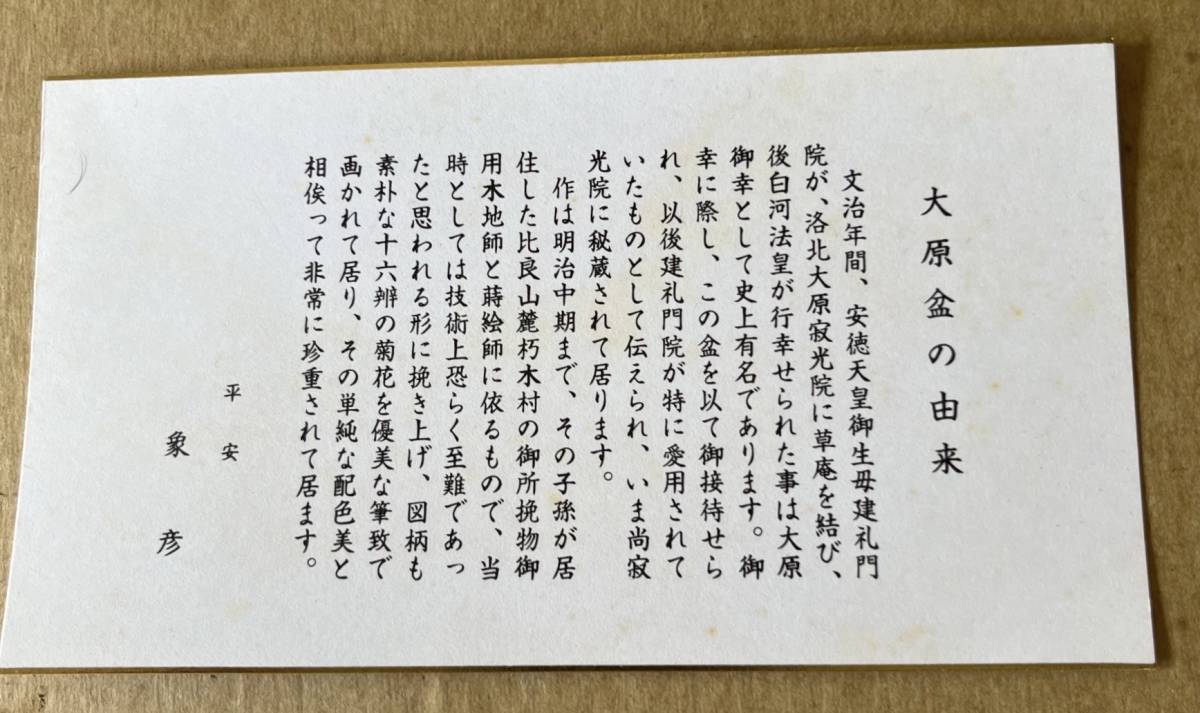 大原盆の由来
文治年間、安徳天皇御生母建礼門
院が、洛北大原寂光院に草庵を結び、
後白河法皇が行幸せられた事は大原
御幸として史上有名であります。御
幸に際し、この盆を以て御接待せら
れ、以後建礼門院が特に愛用されて
いたものとして伝えられ、いま尚寂
光院に秘蔵されて居ります。
作は明治中期まで、その子孫が居
住した比良山麓朽木村の御所挽物御
用木地師と蒔絵師に依るもので、当
時としては技術上恐らく至難であっ
たと思われる形に挽き上げ、図柄も
素朴な十六辨の菊花を優美な筆致で
画かれて居り、その単純な配色美と
相俟って非常に珍重されて居ます。
平安
象彦